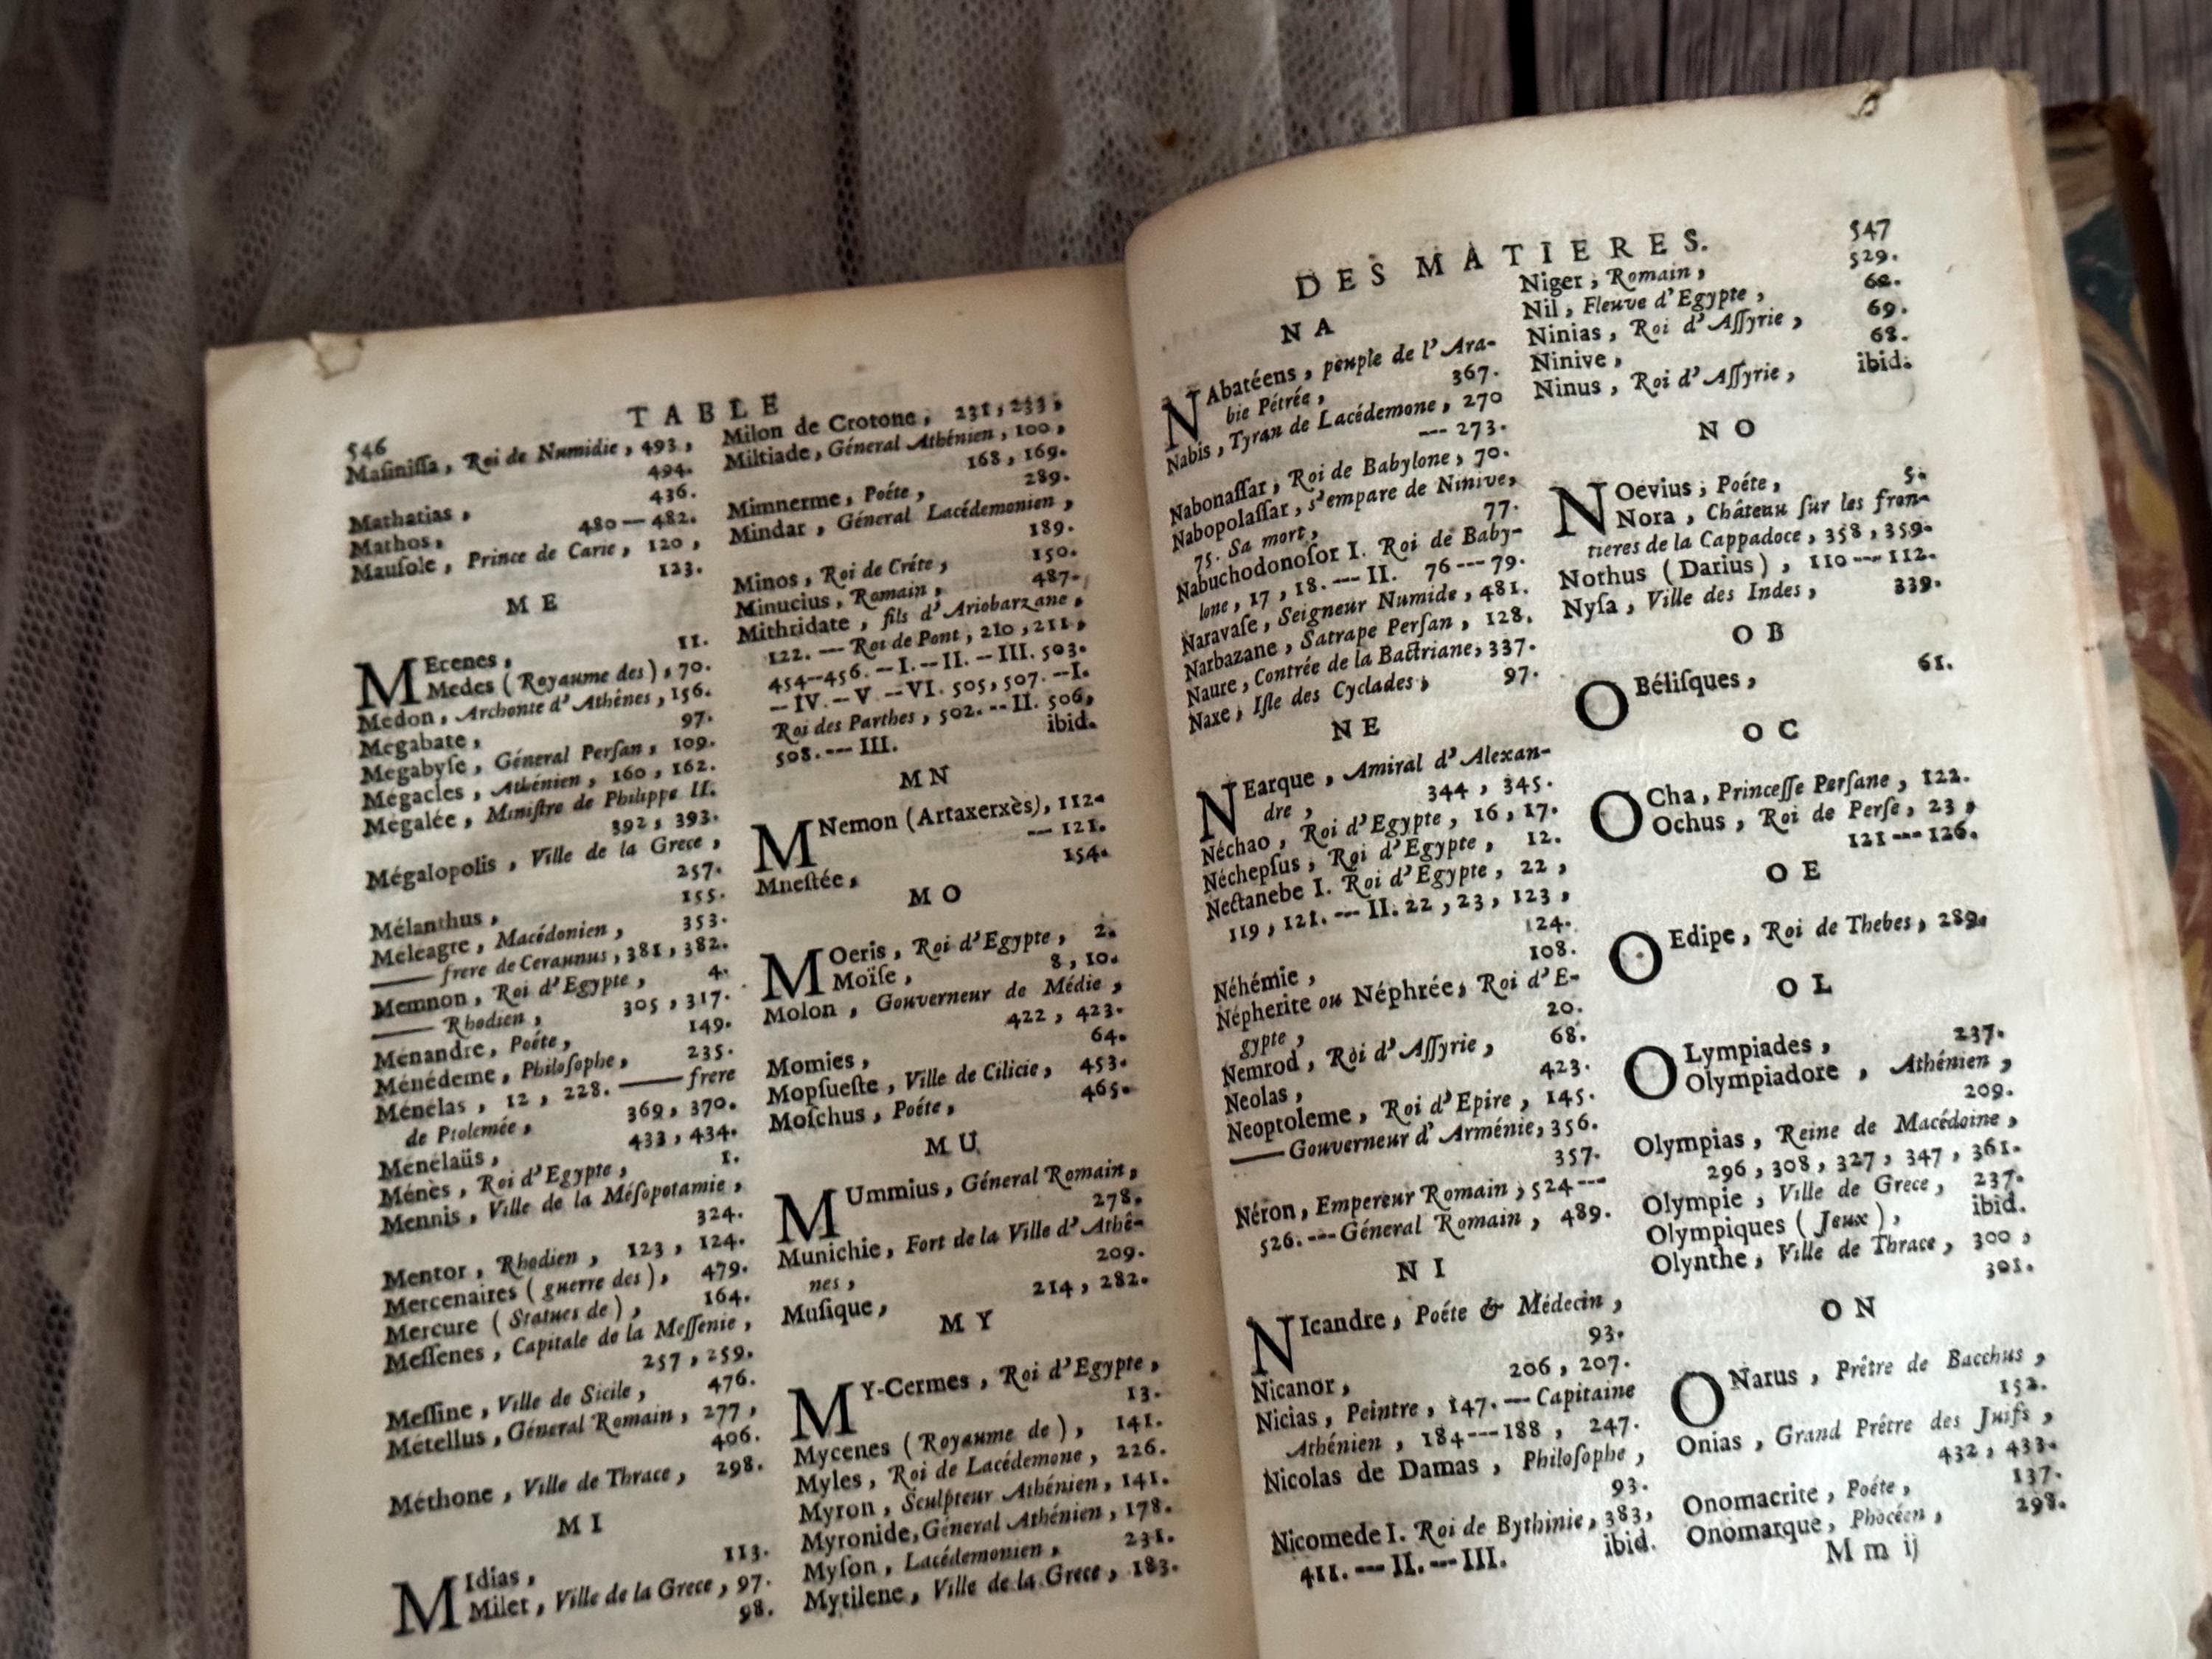 546
TABLE
Maſiniſſa, Roi de Numidie, 493,
494.
Mathatias, 436.
Mathos, 480—482.
Mauſole, Prince de Carie, 120,
123.
ME
MEcenes, 11.
Medes (Royaume des), 70.
Medon, Archonte d'Athênes, 156.
Mégabate, 97.
Mégabyſe, Géneral Perſan, 109.
Mégacles, Athénien, 160, 162.
Mégalée, Miniſtre de Philippe II.
392, 393.
Mégalopolis, Ville de la Grece,
257.
Mélanthus, 155.
Méleagre, Macédonien, 353.
—— frere de Ceraunus, 381, 382.
Memnon, Roi d'Egypte, 4.
—— Rhodien, 305, 317.
Ménandre, Poéte, 149.
Ménédeme, Philoſophe, 235.
Ménélas, 12, 228. —— frere
de Ptolemée, 369, 370.
Ménélaüs, 433, 434.
Ménès, Roi d'Egypte, 1.
Mennis, Ville de la Méſopotamie,
324.
Mentor, Rhodien, 123, 124.
Mercenaires (guerre des), 479.
Mercure (Statues de), 164.
Meſſenes, Capitale de la Meſſenie,
257, 259.
Meſſine, Ville de Sicile, 476.
Métellus, Géneral Romain, 277,
406.
Méthone, Ville de Thrace, 298.
MI
MIdias, 113.
Milet, Ville de la Grece, 97.
98.
Milon de Crotone, 231, 233,
Miltiade, Géneral Athénien, 100,
168, 169.
Mimnerme, Poéte, 289.
Mindar, Géneral Lacédemonien,
189.
Minos, Roi de Créte, 150.
Minucius, Romain, 487.
Mithridate, fils d'Ariobarzane,
122. --- Roi de Pont, 210, 211,
454--456. -- I. -- II. -- III. 503.
-- IV. -- V -- VI. 505, 507. -- I.
Roi des Parthes, 502. -- II. 506,
508. --- III. ibid.
MN
MNemon (Artaxerxès), 112-
--- 121.
Mneſtée, 154.
MO
MOeris, Roi d'Egypte, 2.
Moïſe, 8, 10.
Molon, Gouverneur de Médie,
422, 423.
Momies, 64.
Mopſueſte, Ville de Cilicie, 453.
Moſchus, Poéte, 465.
MU
MUmmius, Géneral Romain,
278.
Munichie, Fort de la Ville d'Athê-
nes, 209.
Muſique, 214, 282.
MY
MY-Cermes, Roi d'Egypte,
13.
Mycenes (Royaume de), 141.
Myles, Roi de Lacédemone, 226.
Myron, Sculpteur Athénien, 141.
Myronide, Géneral Athénien, 178.
Myſon, Lacédemonien, 231.
Mytilene, Ville de la Grece, 183.
DES MATIERES. 547
NA
NAbatéens, peuple de l'Ara-
bie Pétrée, 367.
Nabis, Tyran de Lacédemone, 270
--- 273.
Nabonaſſar, Roi de Babylone, 70.
Nabopolaſſar, s'empare de Ninive,
75. Sa mort, 77.
Nabuchodonoſor I. Roi de Baby-
lone, 17, 18. --- II. 76 --- 79.
Naravaſe, Seigneur Numide, 481.
Narbazane, Satrape Perſan, 128.
Naure, Contrée de la Bactriane, 337.
Naxe, Iſle des Cyclades, 97.
NE
NEarque, Amiral d'Alexan-
dre, 344, 345.
Néchao, Roi d'Egypte, 16, 17.
Néchepſus, Roi d'Egypte, 12.
Nectanebe I. Roi d'Egypte, 22,
119, 121. --- II. 22, 23, 123,
124.
Néhémie, 108.
Népherite ou Néphrée, Roi d'E-
gypte, 20.
Nemrod, Roi d'Aſſyrie, 68.
Neolas, 423.
Neoptoleme, Roi d'Epire, 145.
—— Gouverneur d'Arménie, 356.
357.
Néron, Empereur Romain, 524 ---
526. --- Géneral Romain, 489.
NI
NIcandre, Poéte & Médecin,
93.
Nicanor, 206, 207.
Nicias, Peintre, 147. --- Capitaine
Athénien, 184---188, 247.
Nicolas de Damas, Philoſophe,
93.
Nicomede I. Roi de Bythinie, 383,
411. --- II. --- III. ibid.
Niger, Romain, 529.
Nil, Fleuve d'Egypte, 62.
Ninias, Roi d'Aſſyrie, 69.
Ninive, 68.
Ninus, Roi d'Aſſyrie, ibid.
NO
NOevius, Poéte, 5.
Nora, Château ſur les fron-
tieres de la Cappadoce, 358, 359.
Nothus (Darius), 110---112.
Nyſa, Ville des Indes, 339.
OB
OBéliſques, 61.
OC
OCha, Princeſſe Perſane, 122.
Ochus, Roi de Perſe, 23,
121---126.
OE
OEdipe, Roi de Thebes, 289.
OL
OLympiades, 237.
Olympiadore, Athénien,
209.
Olympias, Reine de Macédoine,
296, 308, 327, 347, 361.
Olympie, Ville de Grece, 237.
Olympiques (Jeux), ibid.
Olynthe, Ville de Thrace, 300,
301.
ON
ONarus, Prêtre de Bacchus,
152.
Onias, Grand Prêtre des Juifs,
432, 433.
Onomacrite, Poéte, 137.
Onomarque, Phocéen, 298.
M m ij